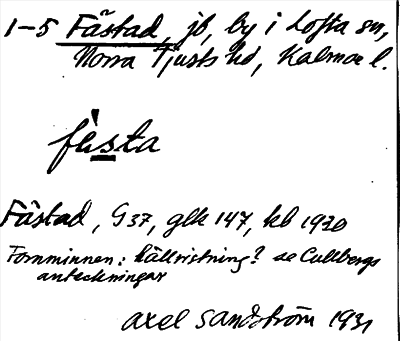 1-5 Fåstad, jb, by i Lofta sn,
Norra Tjusts hd, Kalmar l.
fὲsta
Fåstad, G37, glk 147, kb 1920
Fornminnen: hällristning? se Cullbergs
anteckningar
Axel Sandström 1931